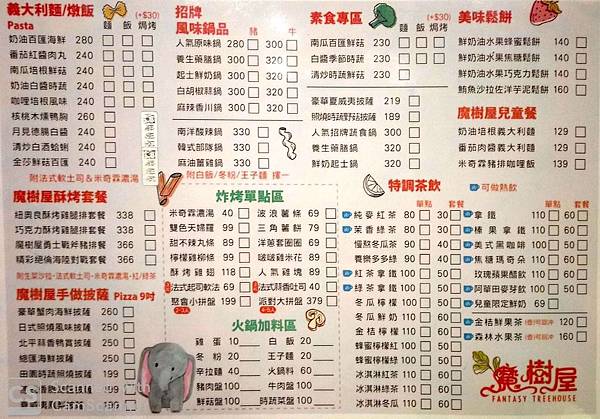 義大利麵/燉飯 (+$30)
Pasta 麵 飯 焗烤
奶油百匯海鮮 240
番茄紅醬肉丸 240
南瓜培根鮮菇 240
奶油白醬時蔬 240
咖哩培根風味 240
核桃木燻鴨胸 260
月見德腸白醬 260
清炒白酒蛤蜊 260
金莎鮮菇百匯 260
附法式軟土司&米奇霖濃湯
魔樹屋酥烤套餐
紐奧良酥烤雞腿排套餐 338
巧克力酥烤雞腿排套餐 338
魔樹屋勇士戰斧豬排套餐 366
精彩絕倫海陸對戰套餐 366
附生菜沙拉・法式軟土司・米奇霖濃湯・紅/綠茶
魔樹屋手做披薩 Pizza 9吋
豪華蟹肉海鮮披薩 260
日式照燒風味披薩 250
北平蒜香鴨賞披薩 250
總匯海鮮披薩 260
招牌
風味鍋品 豬 牛
人氣原味鍋 280 300
養生藥膳鍋 300 320
起士鮮奶鍋 300 320
白胡椒豬鍋 300 320
麻辣香川鍋 300 320
南洋酸辣鍋 330
韓式部隊鍋 330
麻油薑雞鍋 330
附白飯/冬粉/王子麵 擇一
素食專區 (+$30)
麵 飯 焗烤
南瓜百匯鮮菇 230
白醬季節時蔬 230
清炒時蔬鮮菇 230
豪華夏威夷披薩 219
照燒時蔬野菇披薩 189
人氣招牌蔬食鍋 300
養生藥膳鍋 300
鮮奶起士鍋 300
美味鬆餅
鮮奶油水果蜂蜜鬆餅 140
鮮奶油水果焦糖鬆餅 140
鮮奶油水果巧克力鬆餅 140
鮪魚沙拉佐洋芋泥鬆餅 160
魔樹屋兒童餐
奶油培根義大利麵 129
番茄肉醬義大利麵 129
米奇霖豬排咖哩飯 139
炸烤單點區
米奇霖濃湯 40 波浪薯條 69
雙色天婦羅 99 三角薯餅 79
甜不辣丸條 89 洋蔥圈圈 89
檸檬雞柳條 99 啵啵雞米花 89
酥烤雞翅 118 人氣雞塊 89
法式起司軟法 69 法式蒜香吐司 40
聚會小拼盤 199 派對大拼盤 379
2-3人 4-5人
火鍋加料區
雞蛋 10 白飯 20
冬粉 20 王子麵 20
辛拉麵 40 火鍋料 60
豬肉盤 100 牛肉盤 100
鮮蝦盤 100 時蔬菜盤 100
特調茶飲 可做熱飲
單點 套餐 單點 套餐
純麥紅茶 80 30 拿鐵 110 60
茉香綠茶 80 30 榛果拿鐵 110 60
慢熬冬瓜茶 90 40 美式黑咖啡 100 50
養樂多多綠 90 40 焦糖瑪奇朵 110 60
紅茶拿鐵 100 50 玫瑰蘋果醋飲 110 60
綠茶拿鐵 100 50 阿華田麥芽飲 110 60
冬瓜檸檬 100 50 兒童限定鮮奶 69
冬瓜鮮奶 110 60 金桔鮮果茶 120
金桔檸檬 100 50 森林水果茶 160
蜂蜜檸檬綠 100 50
蜂蜜檸檬紅 100 50
冰淇淋紅茶 100 50
冰淇淋綠茶 100 50
魔樹屋
FANTASY TREEHOUSE
CS